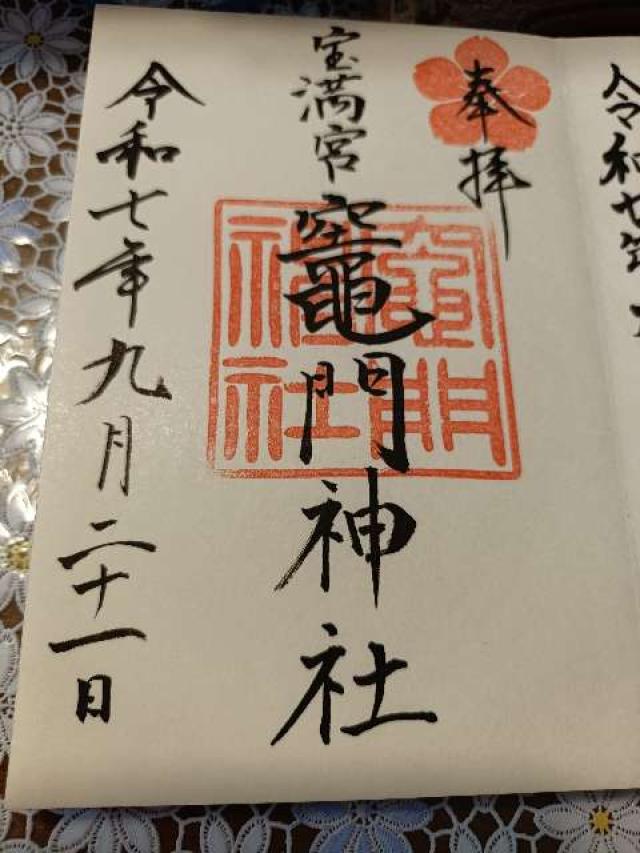 奉拝
宝満宮
竈門神社
竈門神社
令和七年九月二十一日
令和七年